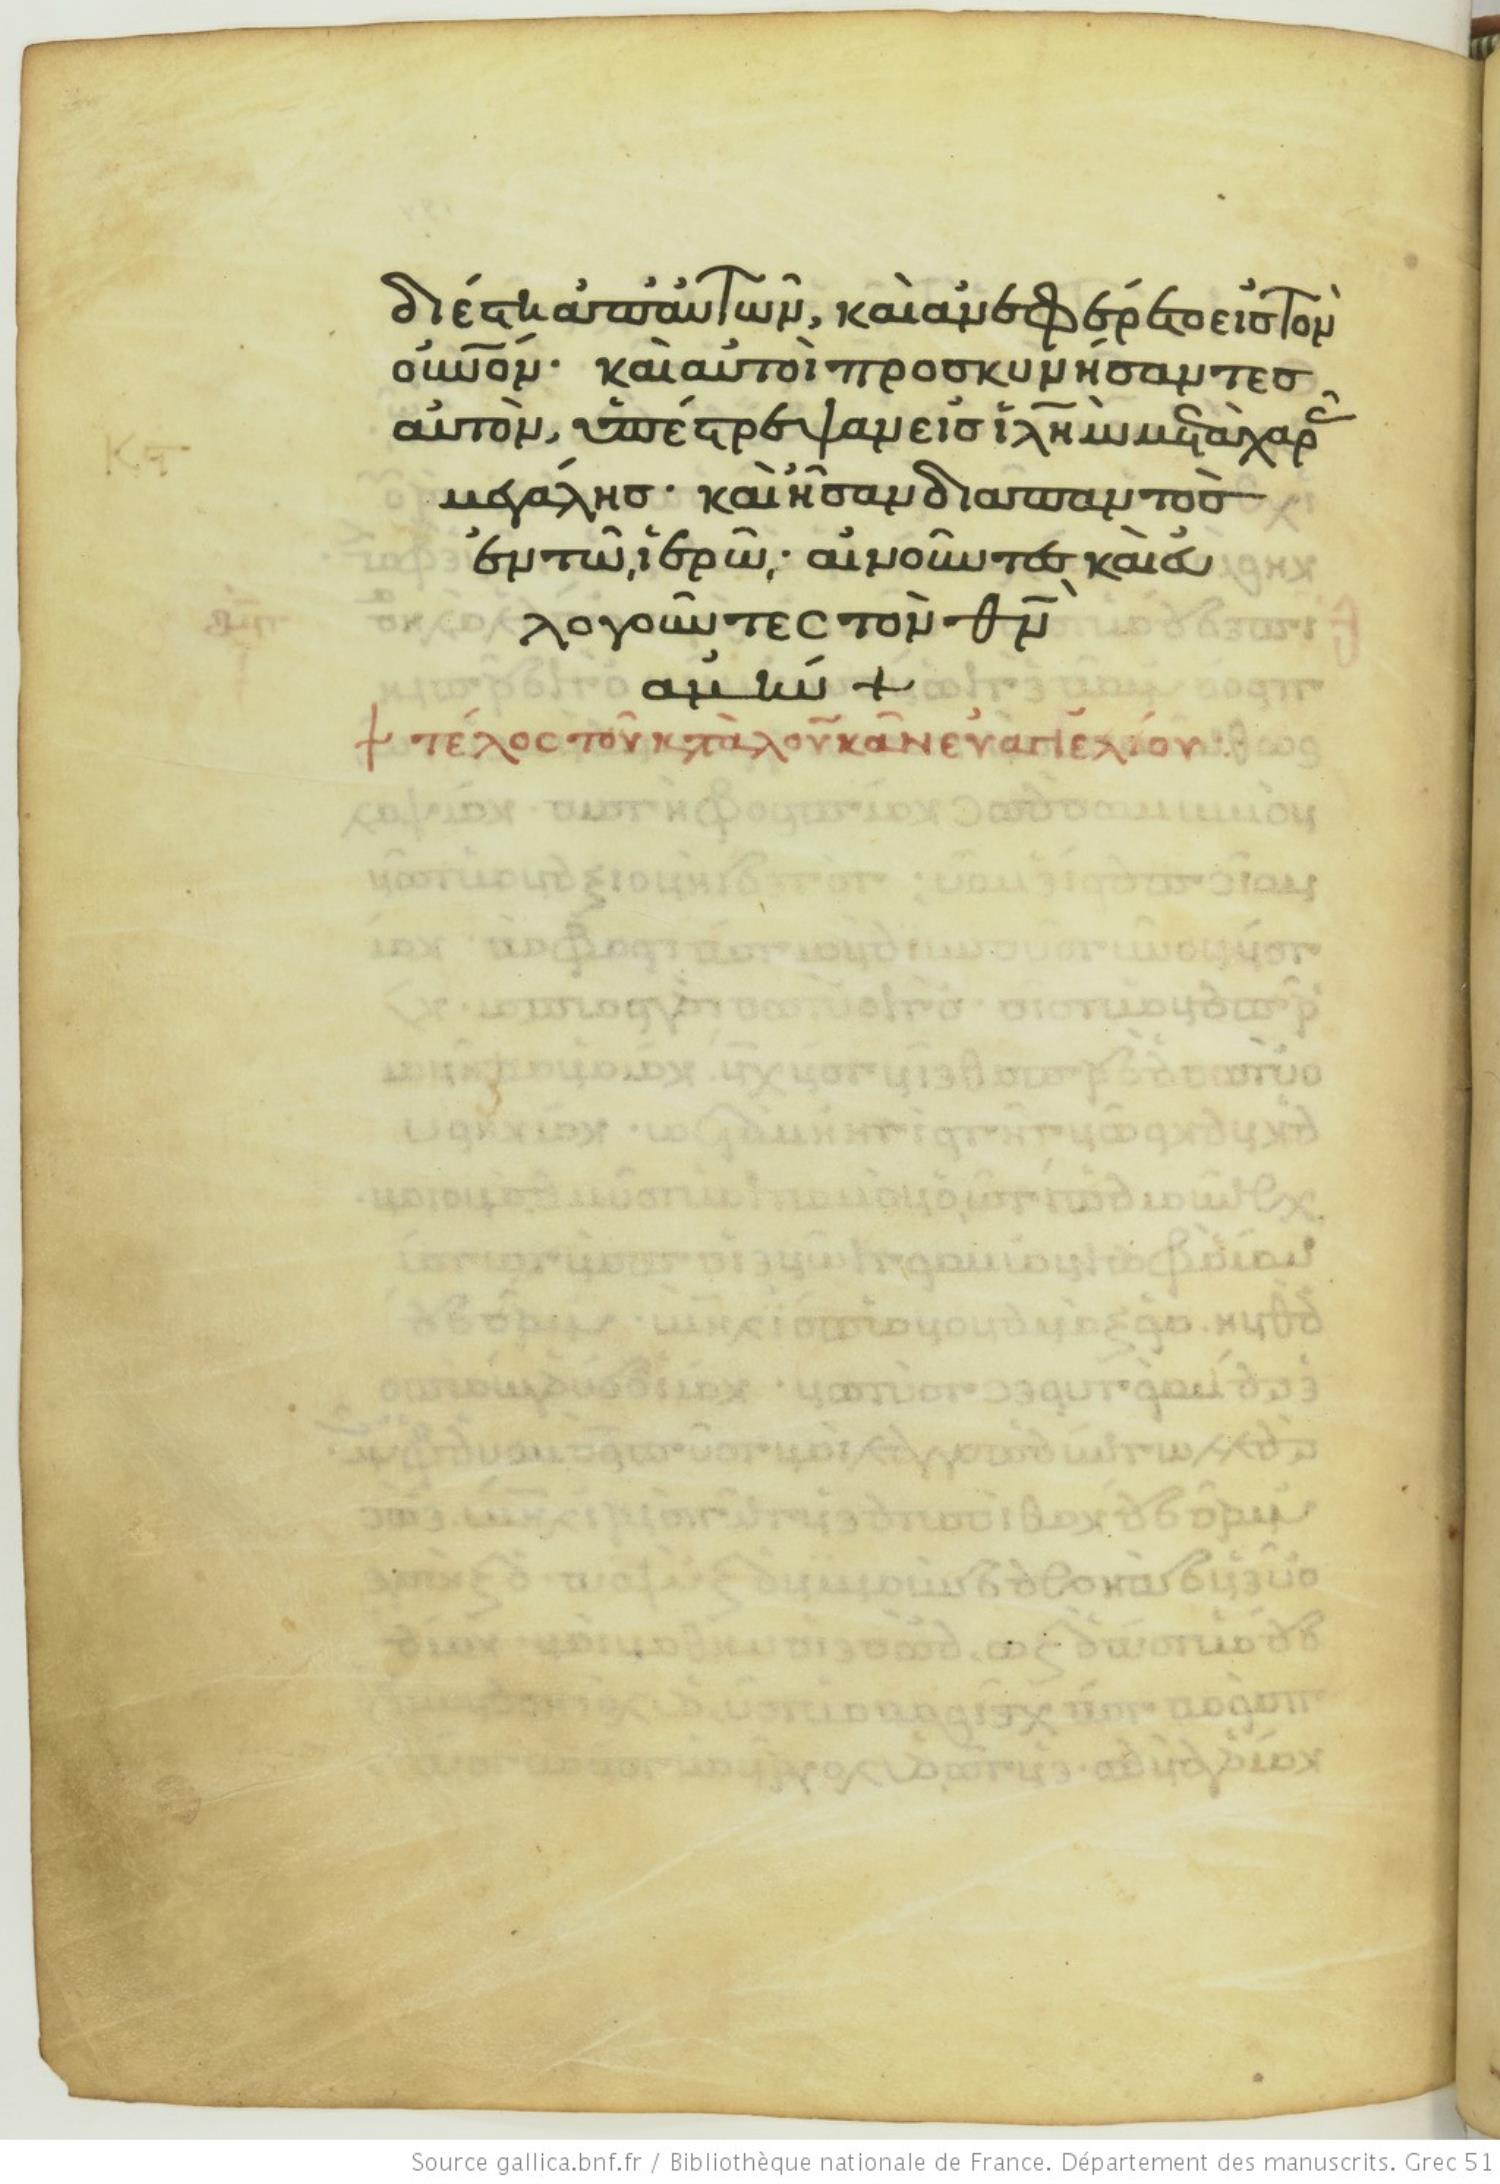 διέστη ἀπ' αὐτῶν, καὶ ἀνεφέρετο εἰς τὸν
οὐνον· καὶ αὐτοὶ προσκυνήσαντες
αὐτὸν, ὑπέστρεψαν εἰς ἰλημ μετὰ χαρᾶς
μεγάλης· καὶ ἦσαν διαπαντὸς
ἐν τῶ ἱερῶ· αἰνοῦντες καὶ εὐ
λογοῦντες τὸν θν
ἀμήν +
+ τέλος τοῦ κατὰ λουκᾶν εὐαγγελίου
Source gallica.bnf.fr / Bibliothèque nationale de France. Département des manuscrits. Grec 51